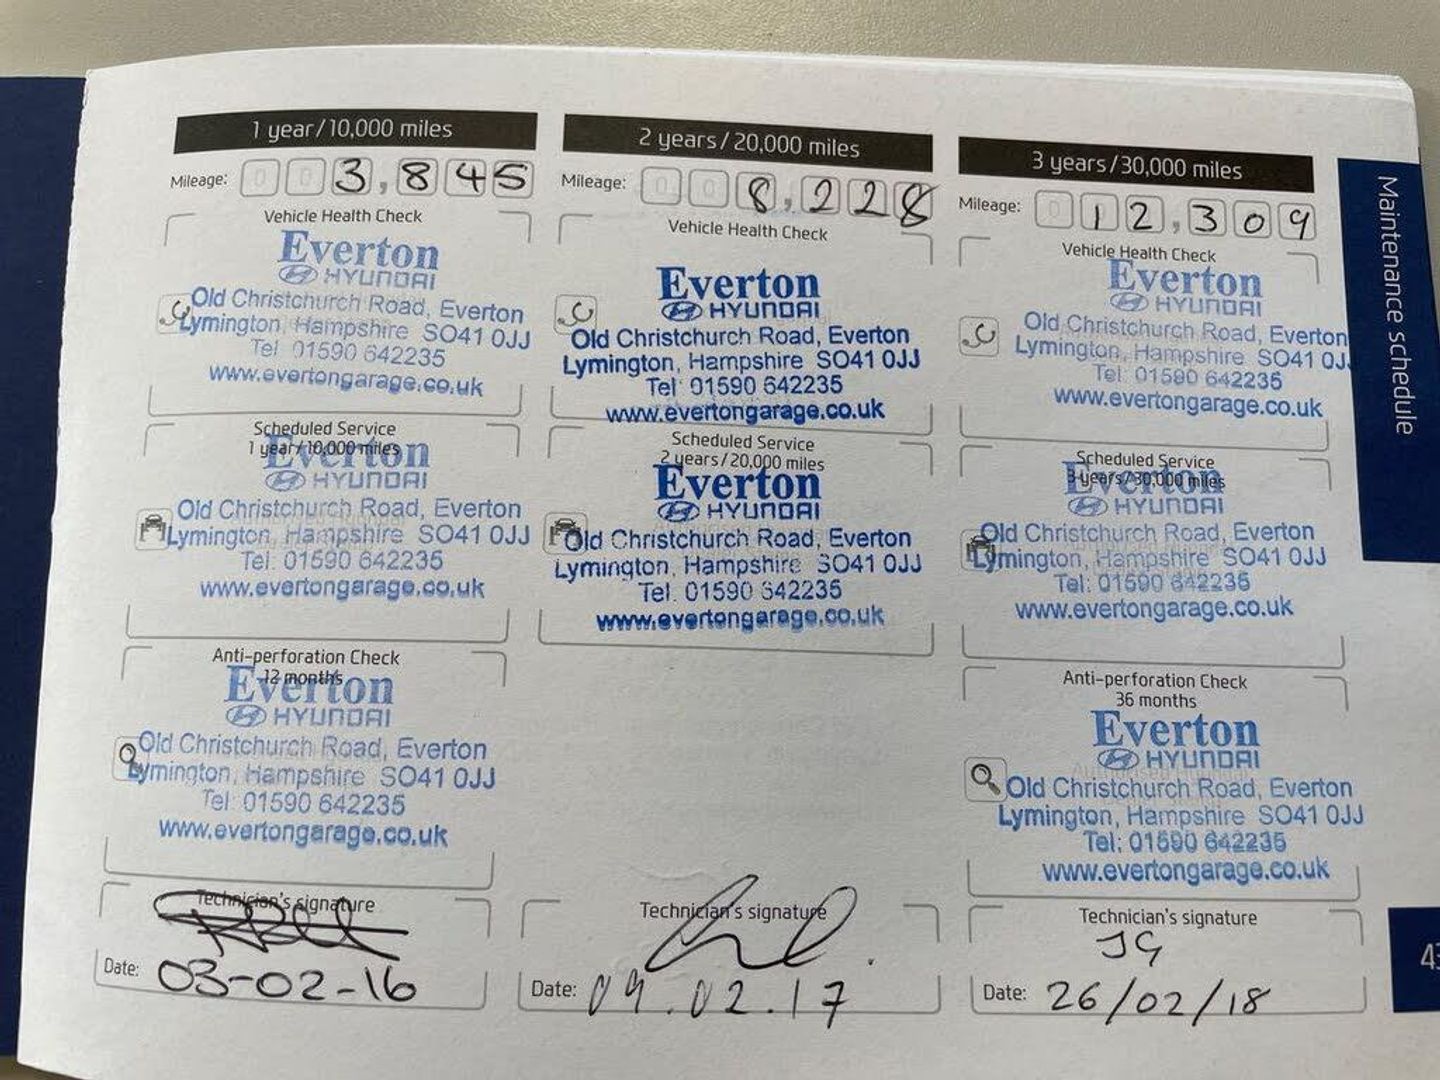 1 year/10,000 miles
Mileage: 0 0 3,845
Vehicle Health Check
Everton
HYUNDAI
Old Christchurch Road, Everton
Lymington, Hampshire SO41 0JJ
Tel: 01590 642235
www.evertongarage.co.uk
Scheduled Service
1 year/10,000 miles
Everton
HYUNDAI
Old Christchurch Road, Everton
Lymington, Hampshire SO41 0JJ
Tel: 01590 642235
www.evertongarage.co.uk
Anti-perforation Check
12 months
Everton
HYUNDAI
Old Christchurch Road, Everton
Lymington, Hampshire SO41 0JJ
Tel: 01590 642235
www.evertongarage.co.uk
Technician's signature
Date: 03-02-16
2 years/20,000 miles
Mileage: 0 0 8,228
Vehicle Health Check
Everton
HYUNDAI
Old Christchurch Road, Everton
Lymington, Hampshire SO41 0JJ
Tel: 01590 642235
www.evertongarage.co.uk
Scheduled Service
2 years/20,000 miles
Everton
HYUNDAI
Old Christchurch Road, Everton
Lymington, Hampshire SO41 0JJ
Tel: 01590 642235
www.evertongarage.co.uk
Technician's signature
Date: 09.02.17
3 years/30,000 miles
Mileage: 0 12,309
Vehicle Health Check
Everton
HYUNDAI
Old Christchurch Road, Everton
Lymington, Hampshire SO41 0J
Tel: 01590 642235
www.evertongarage.co.uk
Scheduled Service
3 years/30,000 miles
Everton
HYUNDAI
Old Christchurch Road, Everton
Lymington, Hampshire SO41 0JJ
Tel: 01590 642235
www.evertongarage.co.uk
Anti-perforation Check
36 months
Everton
HYUNDAI
Old Christchurch Road, Everton
Lymington, Hampshire SO41 0JJ
Tel: 01590 642235
www.evertongarage.co.uk
Technician's signature
JG
Date: 26/02/18
Maintenance schedule